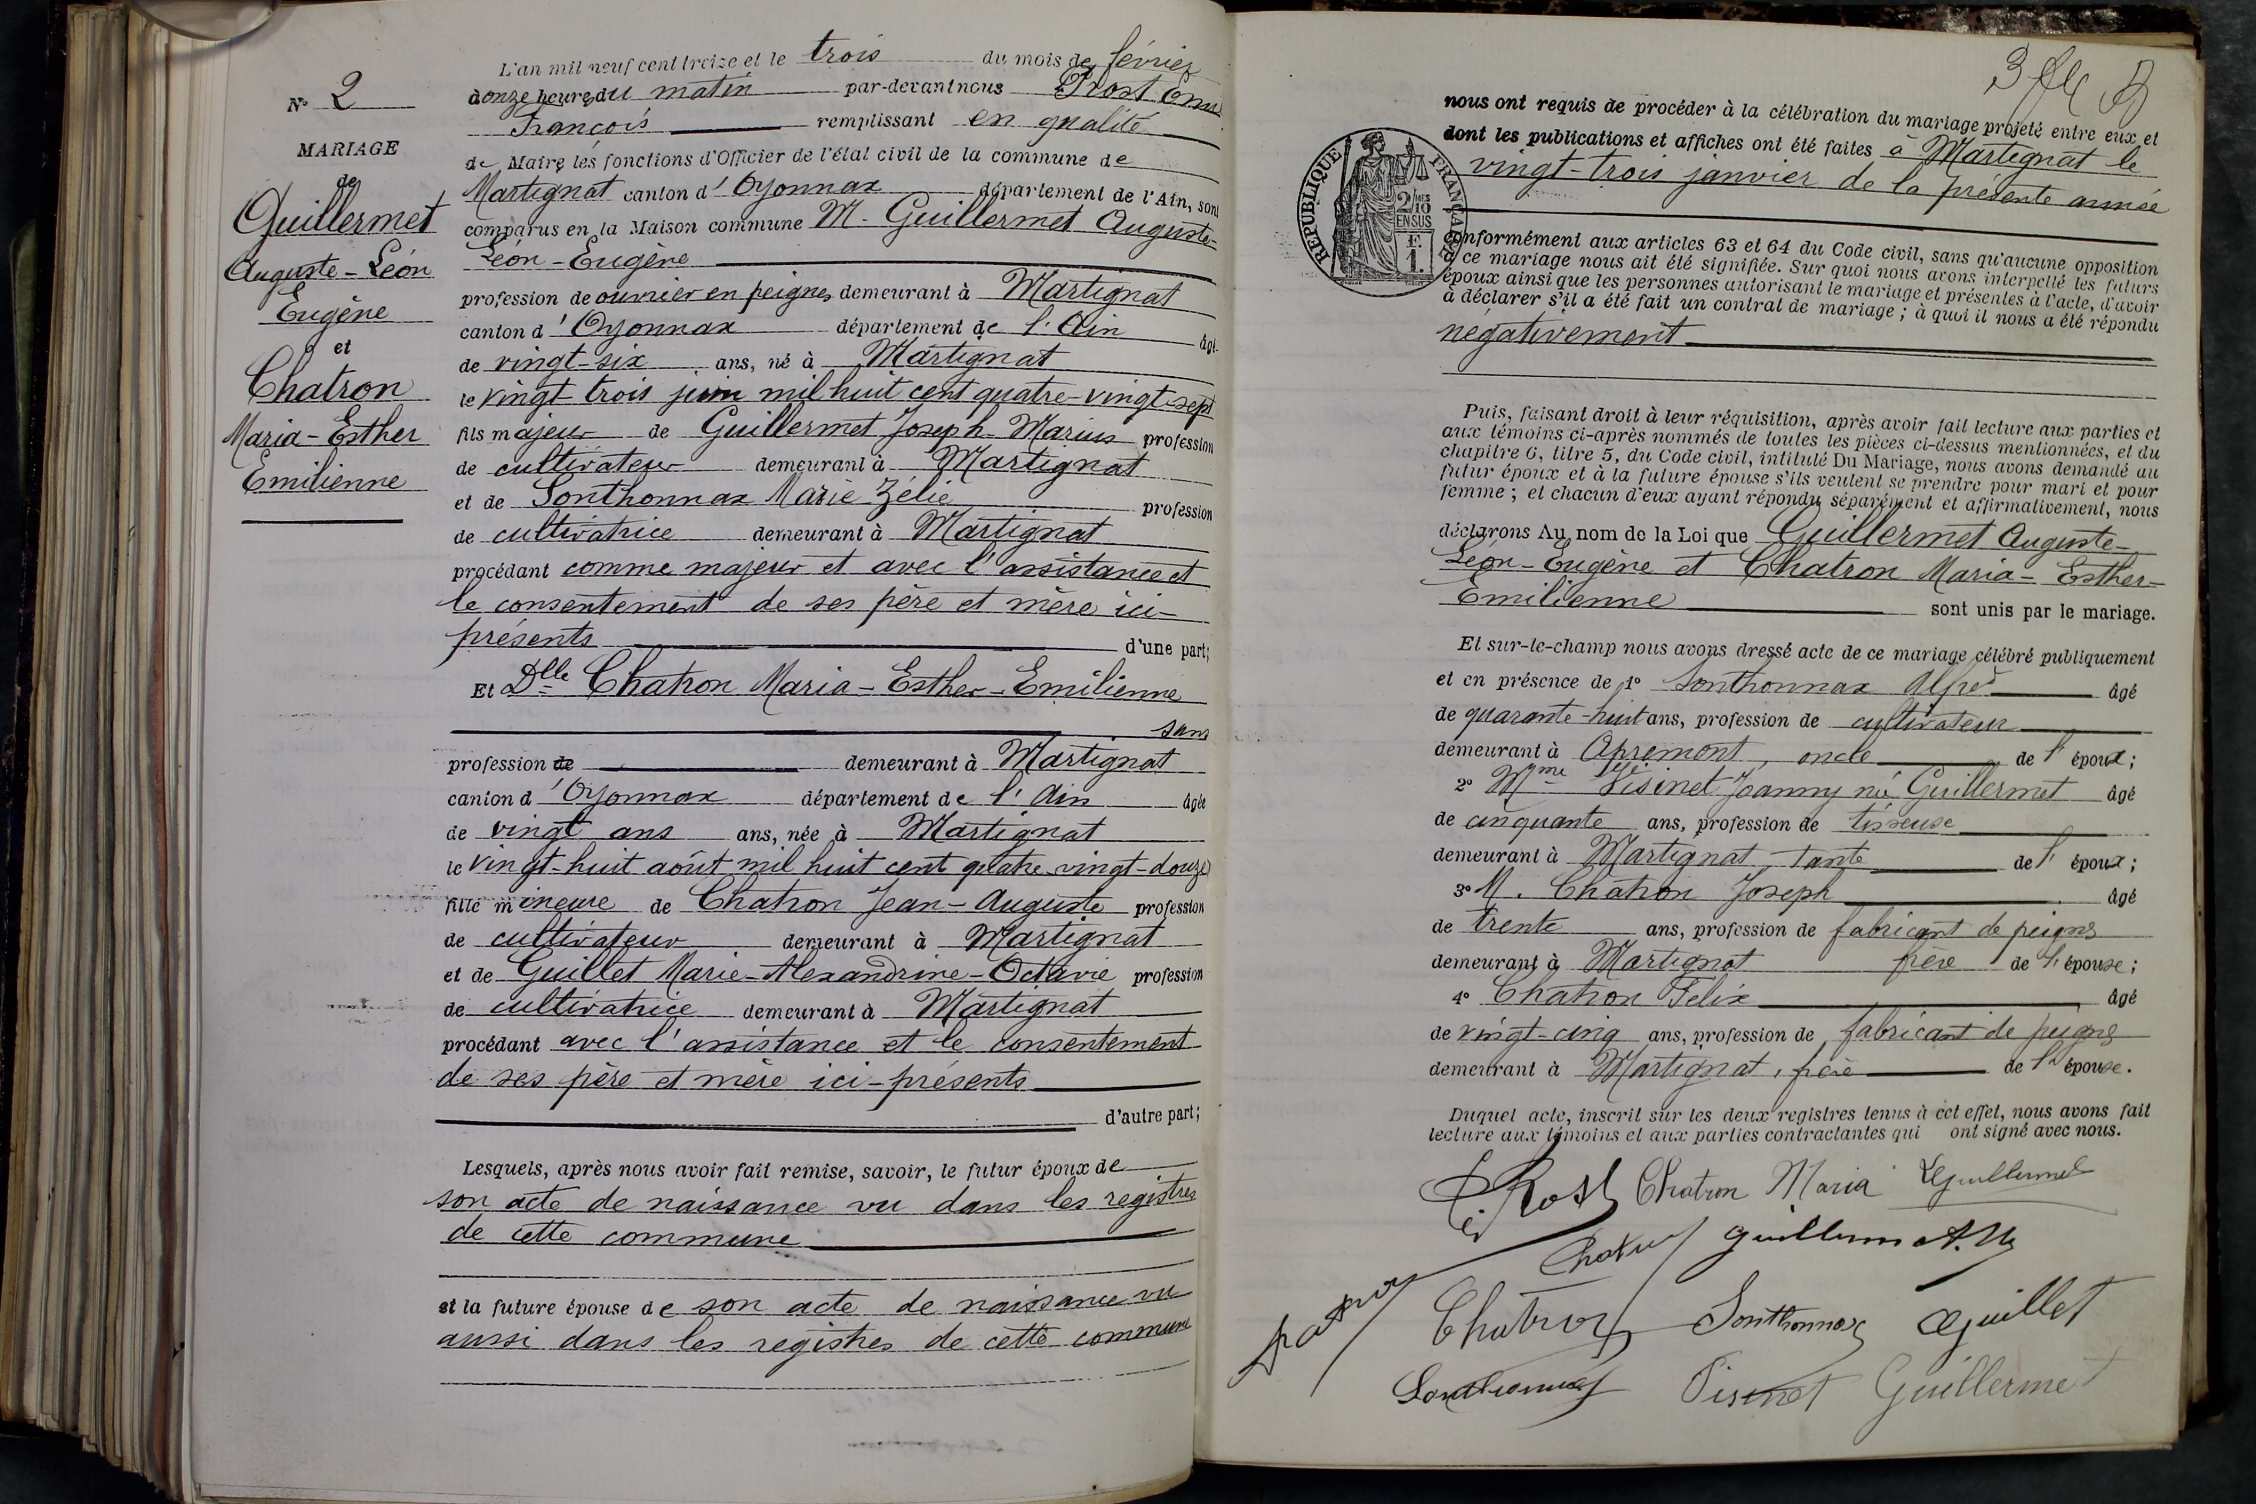 N° 2
MARIAGE
de
Guillermet
Auguste-Léon
Eugène
et
Chatron
Maria-Esther
Emilienne
L'an mil neuf cent treize et le trois du mois de février
à onze heures du matin par-devant nous Prost
François remplissant en qualité
de Maire les fonctions d'Officier de l'état civil de la commune de
Martignat canton d'Oyonnax département de l'Ain, sont
comparus en la Maison commune M. Guillermet Auguste-
Léon-Eugène
profession de ouvrier en peignes demeurant à Martignat
canton d'Oyonnax département de l'Ain âgé
de vingt-six ans, né à Martignat
le vingt trois juin mil huit cent quatre-vingt-sept
fils majeur de Guillermet Joseph-Marius profession
de cultivateur demeurant à Martignat
et de Sonthonnax Marie Zélie profession
de cultivatrice demeurant à Martignat
procédant comme majeur et avec l'assistance et
le consentement de ses père et mère ici-
présents d'une part;
Et Dlle Chatron Maria-Esther-Emilienne
sans
profession de demeurant à Martignat
canton d'Oyonnax département de l'Ain âgée
de vingt ans ans, née à Martignat
le vingt-huit août mil huit cent quatre-vingt-douze
fille mineure de Chatron Jean-Auguste profession
de cultivateur demeurant à Martignat
et de Guillet Marie-Alexandrine-Octavie profession
de cultivatrice demeurant à Martignat
procédant avec l'assistance et le consentement
de ses père et mère ici-présents
d'autre part;
Lesquels, après nous avoir fait remise, savoir, le futur époux de
son acte de naissance vu dans les registres
de cette commune
et la future épouse de son acte de naissance vu
aussi dans les registres de cette commune
nous ont requis de procéder à la célébration du mariage projeté entre eux et
dont les publications et affiches ont été faites à Martignat le
vingt-trois janvier de la présente année
RÉPUBLIQUE FRANÇAISE
2/10
EN SUS
F.
1.
conformément aux articles 63 et 64 du Code civil, sans qu'aucune opposition
à ce mariage nous ait été signifiée. Sur quoi nous avons interpellé les futurs
époux ainsi que les personnes autorisant le mariage et présentes à l'acte, d'avoir
à déclarer s'il a été fait un contrat de mariage; à quoi il nous a été répondu
négativement
Puis, faisant droit à leur réquisition, après avoir fait lecture aux parties et
aux témoins ci-après nommés de toutes les pièces ci-dessus mentionnées, et du
chapitre 6, titre 5, du Code civil, intitulé Du Mariage, nous avons demandé au
futur époux et à la future épouse s'ils veulent se prendre pour mari et pour
femme; et chacun d'eux ayant répondu séparément et affirmativement, nous
déclarons Au nom de la Loi que Guillermet Auguste-
Léon-Eugène et Chatron Maria-Esther-
Emilienne sont unis par le mariage.
Et sur-le-champ nous avons dressé acte de ce mariage célébré publiquement
et en présence de 1° Sonthonnax Alfred âgé
de quarante-huit ans, profession de cultivateur
demeurant à Apremont, oncle de l'époux;
2° Mme Pisinet Joanny née Guillermet âgé
de cinquante ans, profession de tisseuse
demeurant à Martignat, tante de l'époux;
3° M. Chatron Joseph âgé
de trente ans, profession de fabricant de peignes
demeurant à Martignat frère de l'épouse;
4° Chatron Félix âgé
de vingt-cinq ans, profession de fabricant de peignes
demeurant à Martignat, frère de l'épouse.
Duquel acte, inscrit sur les deux registres tenus à cet effet, nous avons fait
lecture aux témoins et aux parties contractantes qui ont signé avec nous.
Prost Chatron Maria LGuillermet
Chatron Guillermet
Chatron Sonthonnax Guillet
Sonthonnax Pisinet Guillermet